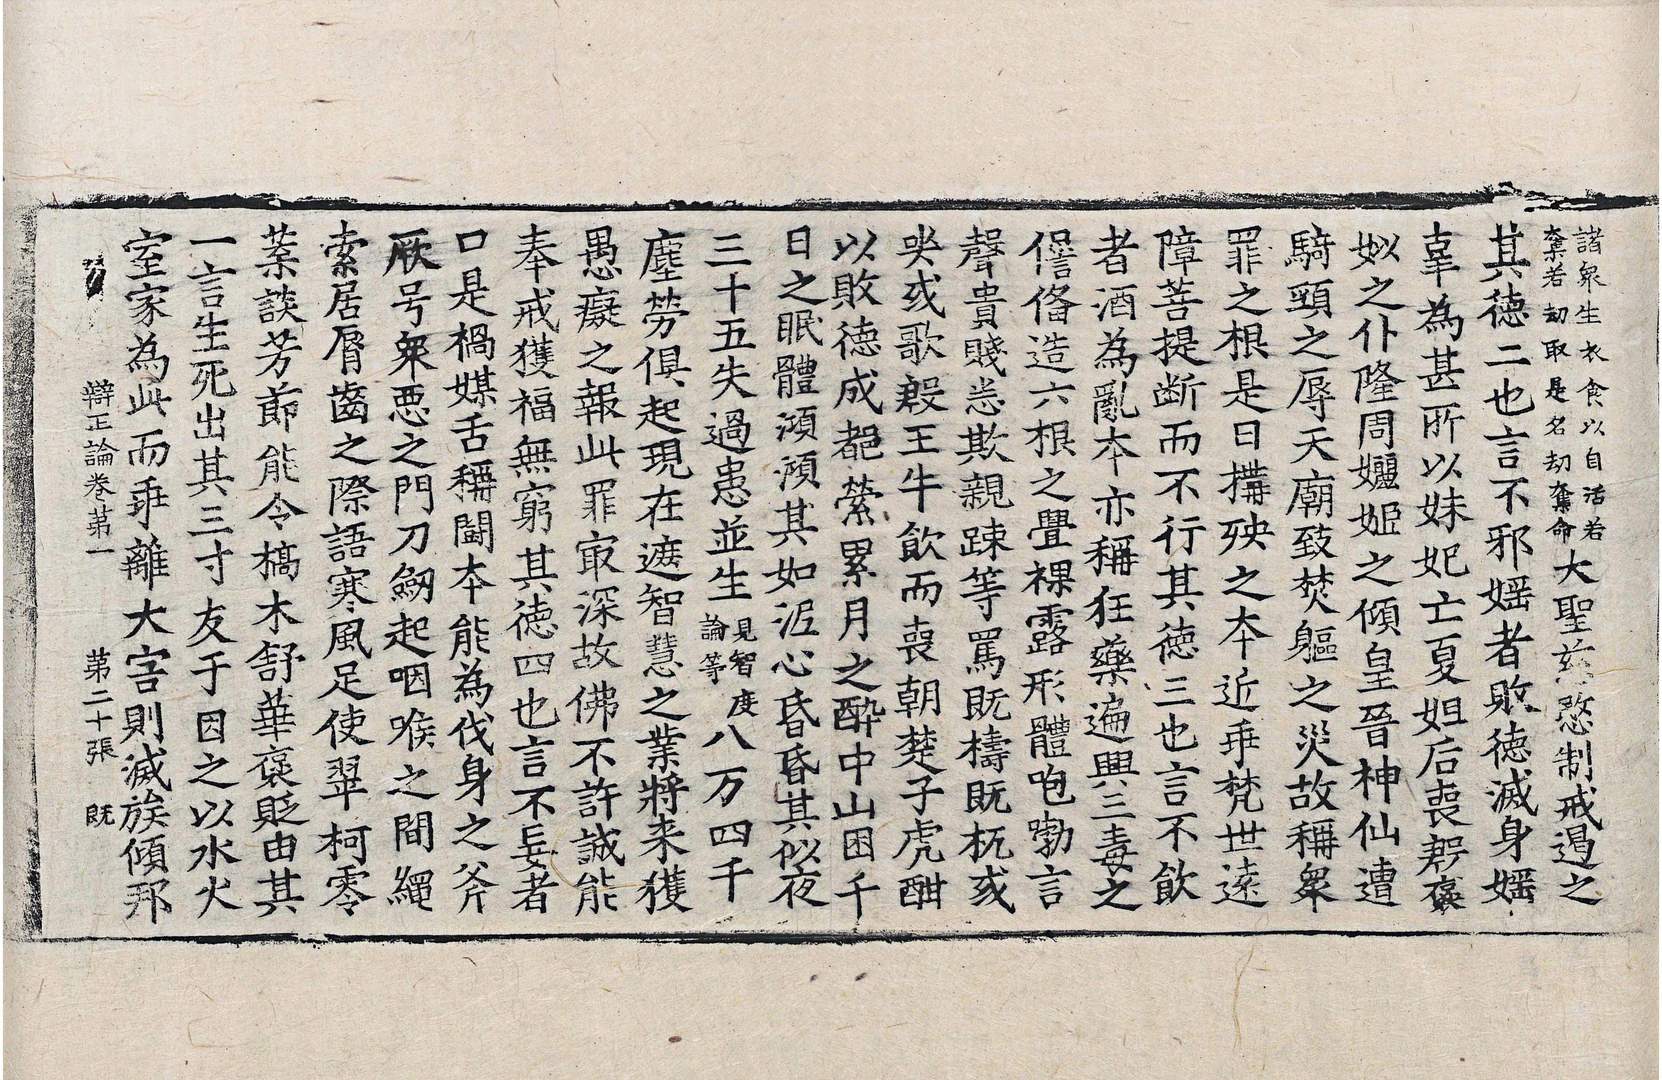 諸衆生衣食以自活若
奪若刧取是名刧奪命
大聖慈愍制戒遏之
其德二也言不邪婬者敗德滅身婬
辜為甚所以妹妃亡夏妲后喪褒
姒之仆隆周孋姬之傾皇晉神仙遭
騎頸之辱天廟致焚軀之災故稱衆
罪之根是曰搆殃之本近乖梵世遠
障菩提断而不行其德三也言不飲
者酒為亂本亦稱狂藥遍興三毒之
俻造六根之舋裸露形體咆勃言
聲貴賤悉欺親踈等罵既檮既杌或
哭或歌殷王牛飲而喪朝楚子虎酣
以敗德成都縈累月之酔中山困千
日之眠體澒澒其如泥心昏昏其似夜
三十五失過患並生
見智度
論等
八万四千
塵勞俱起現在遮智慧之業將来獲
愚癡之報此罪㝡深故佛不許誠能
奉戒獲福無窮其德四也言不妄者
口是禍媒舌稱鬪本能為伐身之斧
厥号衆悪之門刀劒起咽喉之間繩
索居脣齒之際語寒風足使翠柯零
葉談芳節能令槁木舒華褒貶由其
一言生死出其三寸友于因之以水火
室家為此而乖離大害則滅族傾邦
辯正論卷苐一　苐二十張　既